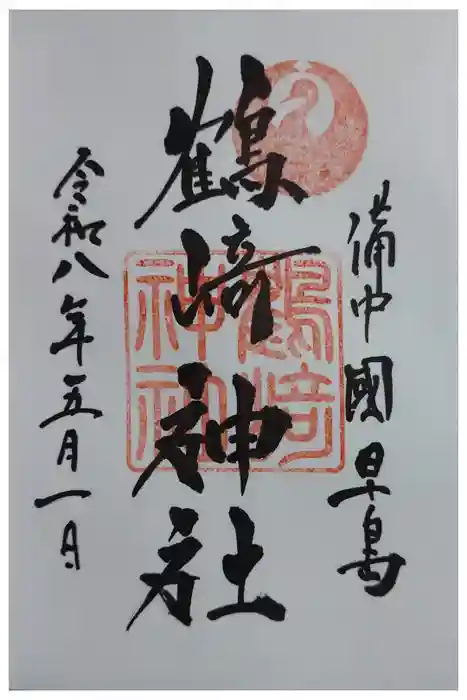 備中國早島
鶴﨑神社
鶴﨑
神社
令和八年五月一日